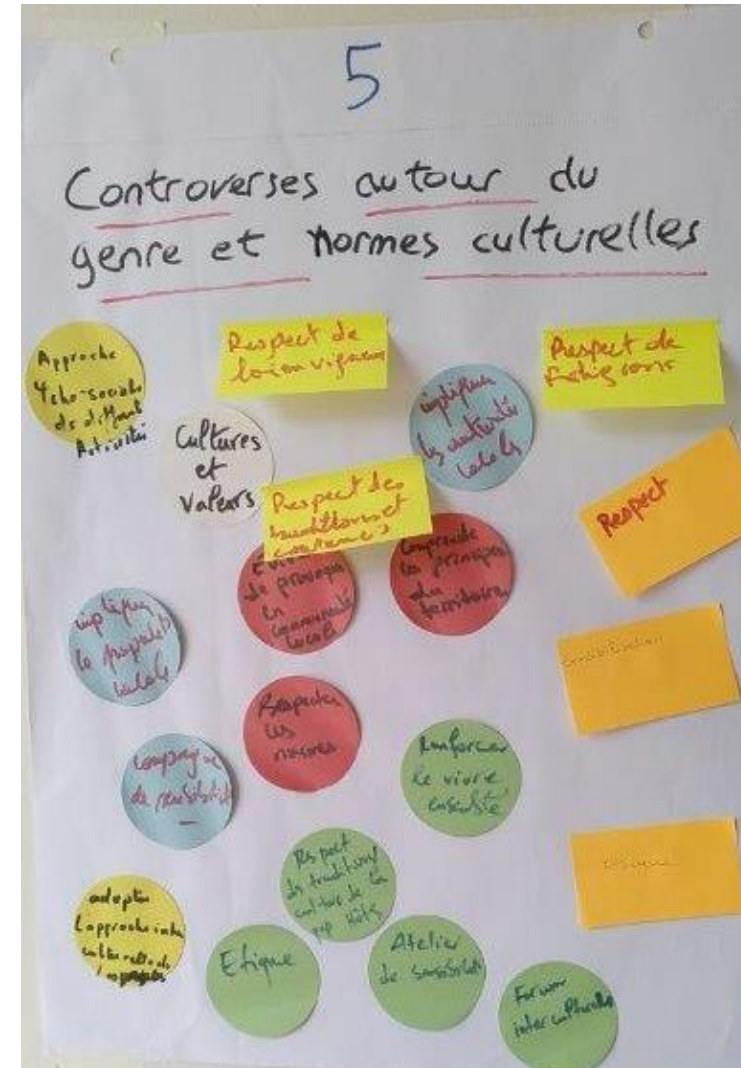 5
Controverses autour du
genre et normes culturelles
Approche
ycho-sociale
de différent
Activités
Respect de
loi en vigueur
Respect de
Cultures
et
Valeurs
impliquer
les autorités
locales
Respect des
traditions et
coutumes
Respect
de provoquer
communauté
local
Comprendre
les principes
du
territoire
impliquer
la population
locale
Respecter
les
normes
Renforcer
le vivre
ensemble
campagne
de
Respect
des traditions
culture de la
pop
adopter
l'approche inter
culturelle de
Etique
Atelier
de
Forum
interculturelle